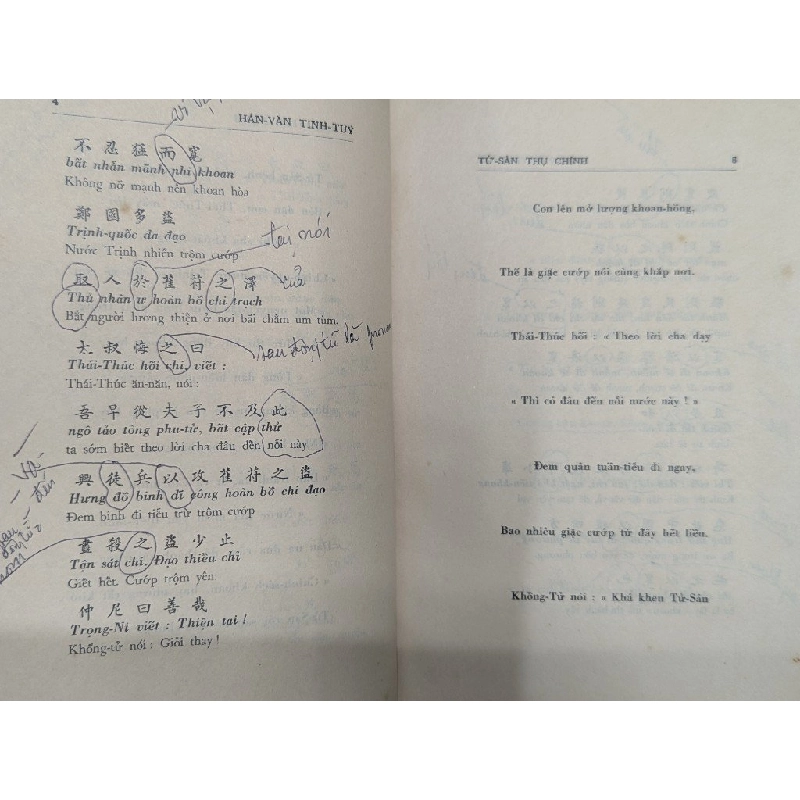 4
HÁN-VĂN TINH-TUÝ
不忍猛而寬
bất nhẫn mãnh nhi khoan
Không nỡ mạnh nên khoan hòa
鄭國多盜
Trịnh-quốc đa đạo
Nước Trịnh nhiên trộm cướp
tại, nơi
取人於萑苻之澤
của
Thủ nhân ư hoàn bồ chi trạch
Bắt người lương thiện ở nơi bãi chằm um tùm.
大叔悔之曰
Thái-Thúc hối chi, viết :
Thái-Thúc ăn-năn, nói :
吾早從夫子不及此
ngô tảo tòng phu-tử, bất cập thử
ta sớm biết theo lời cha đâu đến nỗi này
興徒兵以攻萑苻之盜
Hưng đồ binh dĩ công hoàn bồ chi đạo
Đem binh đi tiễu trừ trộm cướp
盡殺之盜少止
Tận sát chi. Đạo thiểu chỉ
Giết hết. Cướp trộm yên
仲尼曰善哉
Trọng-Ni viết : Thiện tai !
Khổng-tử nói : Giỏi thay !
TỬ-SẢN THỤ CHÍNH
5
Con lên mở lượng khoan-hồng.
Thế là giặc cướp nổi cùng khắp nơi.
Thái-Thúc hối : « Theo lời cha dạy
« Thì có đâu đến nỗi nước này ! »
Đem quân tuần-tiễu đi ngay.
Bao nhiêu giặc cướp từ đây hết liền.
Khổng-Tử nói : « Khá khen Tử-Sản